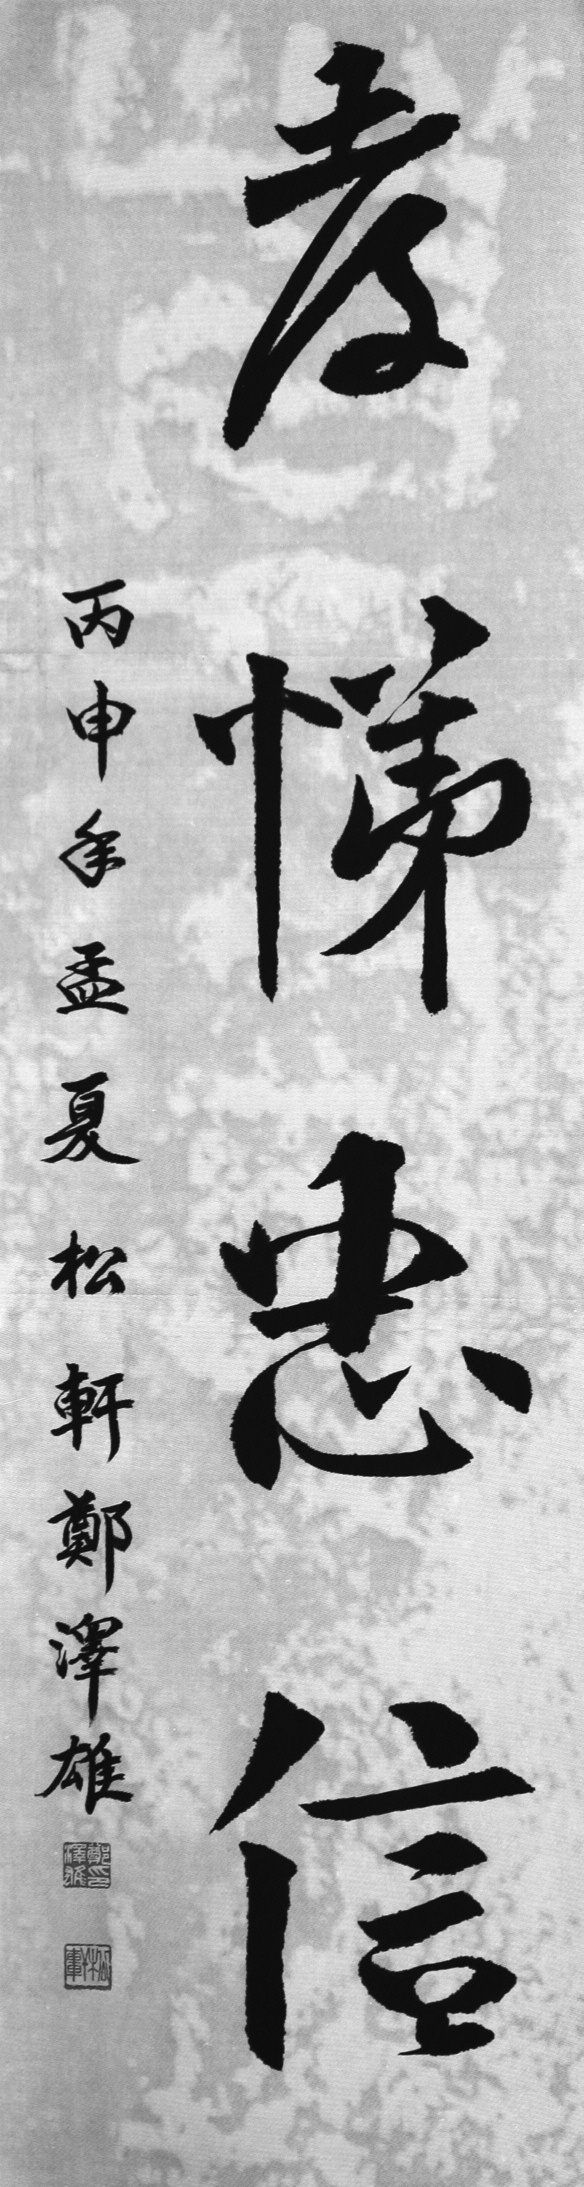 孝悌忠信
丙申年孟夏松軒鄭澤雄
鄭澤雄印
松軒